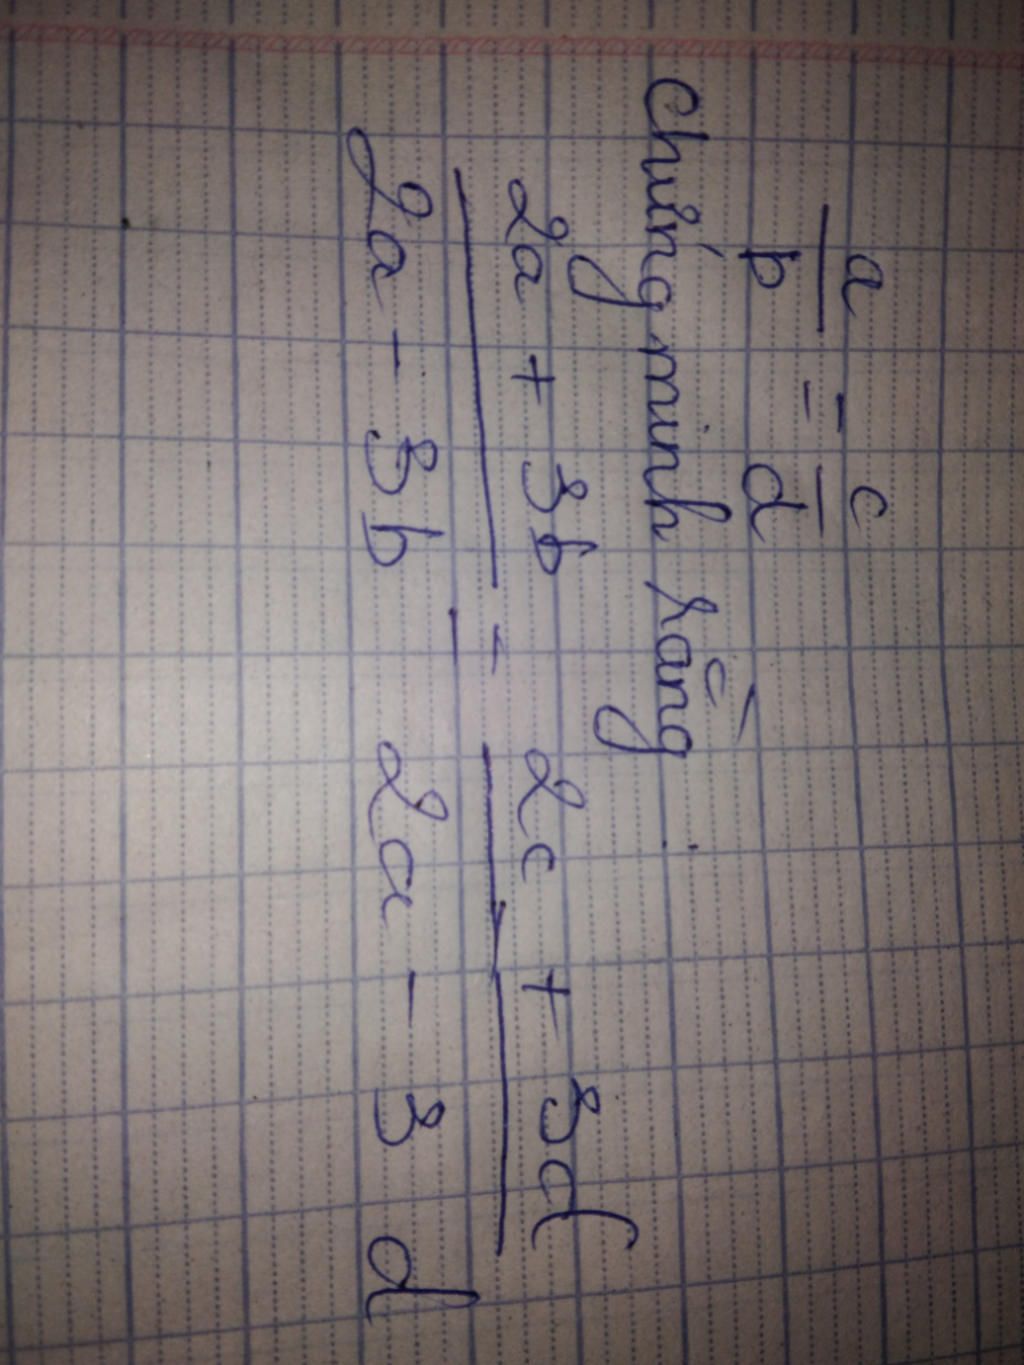 a/b = c/d
Chứng minh rằng
2a + 3b / 2a - 3b = 2c + 3d / 2a - 3d